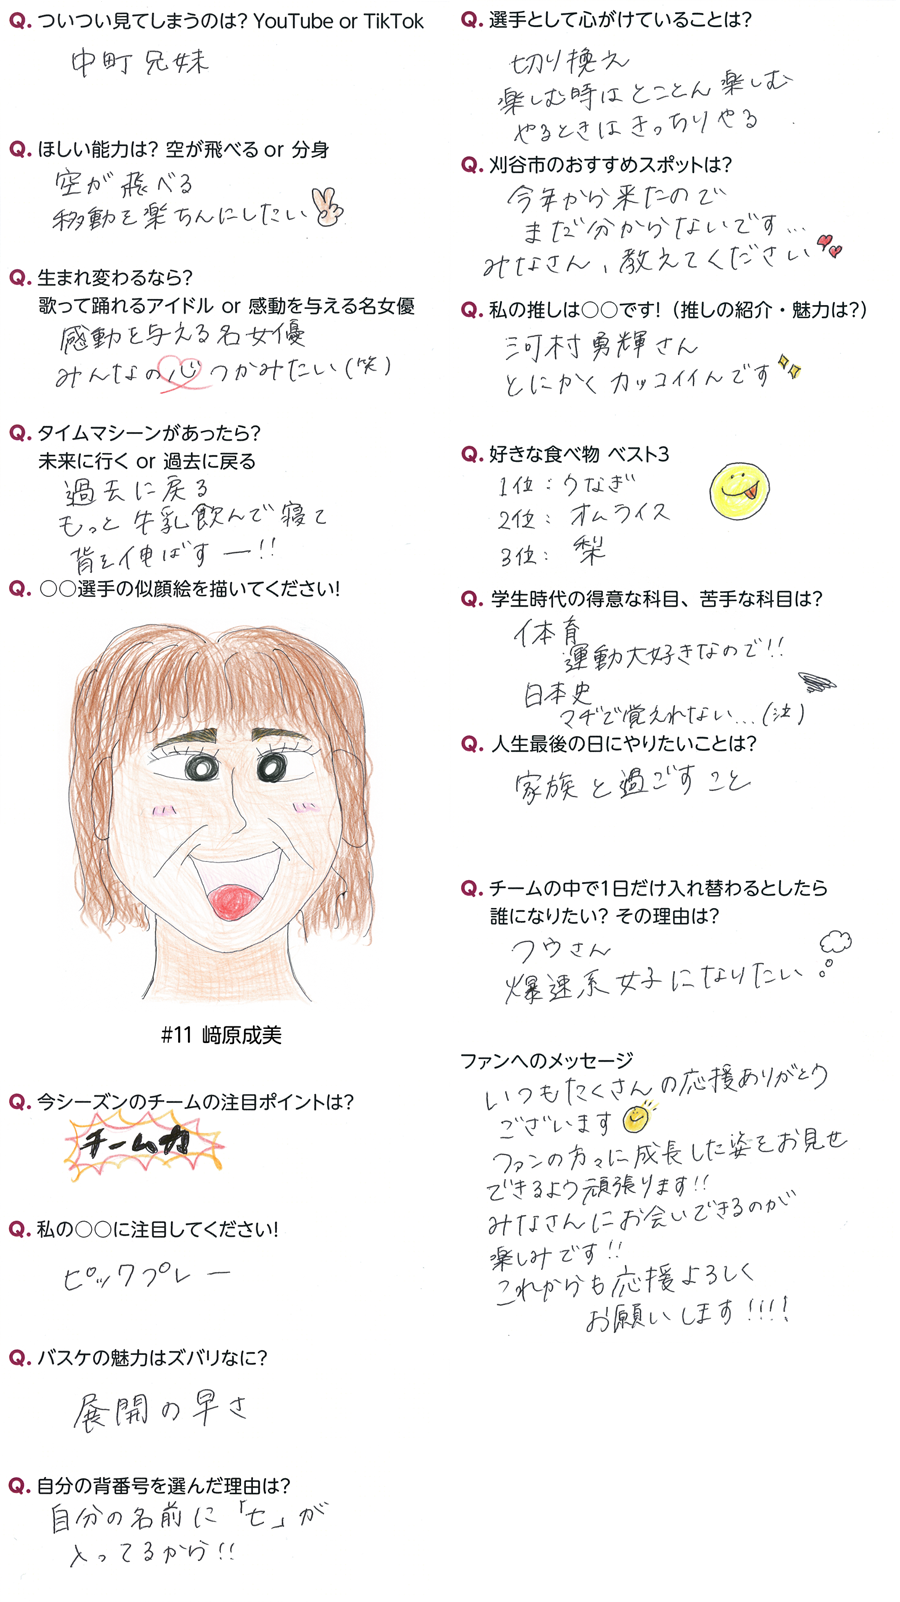 Q. ついつい見てしまうのは? YouTube or TikTok
中町兄妹
Q. ほしい能力は? 空が飛べる or 分身
空が飛べる
移動を楽ちんにしたい
Q. 生まれ変わるなら?
歌って踊れるアイドル or 感動を与える名女優
感動を与える名女優
みんなの心つかみたい(笑)
Q. タイムマシーンがあったら?
未来に行く or 過去に戻る
過去に戻る
もっと牛乳飲んで寝て
背を伸ばすー!!
Q. ○○選手の似顔絵を描いてください!
#11 﨑原成美
Q. 今シーズンのチームの注目ポイントは?
チーム力
Q. 私の○○に注目してください!
ピックプレー
Q. バスケの魅力はズバリなに?
展開の早さ
Q. 自分の背番号を選んだ理由は?
自分の名前に「七」が
入ってるから!!
Q. 選手として心がけていることは?
切り換え
楽しむ時はとことん楽しむ
やるときはきっちりやる
Q. 刈谷市のおすすめスポットは?
今年から来たので
まだ分からないです...
みなさん、教えてください
Q. 私の推しは○○です!（推しの紹介・魅力は?）
河村勇輝さん
とにかくカッコイイんです
Q. 好きな食べ物 ベスト3
1位：うなぎ
2位：オムライス
3位：梨
Q. 学生時代の得意な科目、苦手な科目は?
体育
運動大好きなので!!
日本史
マヂで覚えれない...(泣)
Q. 人生最後の日にやりたいことは?
家族と過ごすこと
Q. チームの中で1日だけ入れ替わるとしたら
誰になりたい? その理由は?
フウさん
爆速系女子になりたい
ファンへのメッセージ
いつもたくさんの応援ありがとう
ございます
ファンの方々に成長した姿をお見せ
できるよう頑張ります!!
みなさんにお会いできるのが
楽しみです!!
これからも応援よろしく
お願いします!!!!